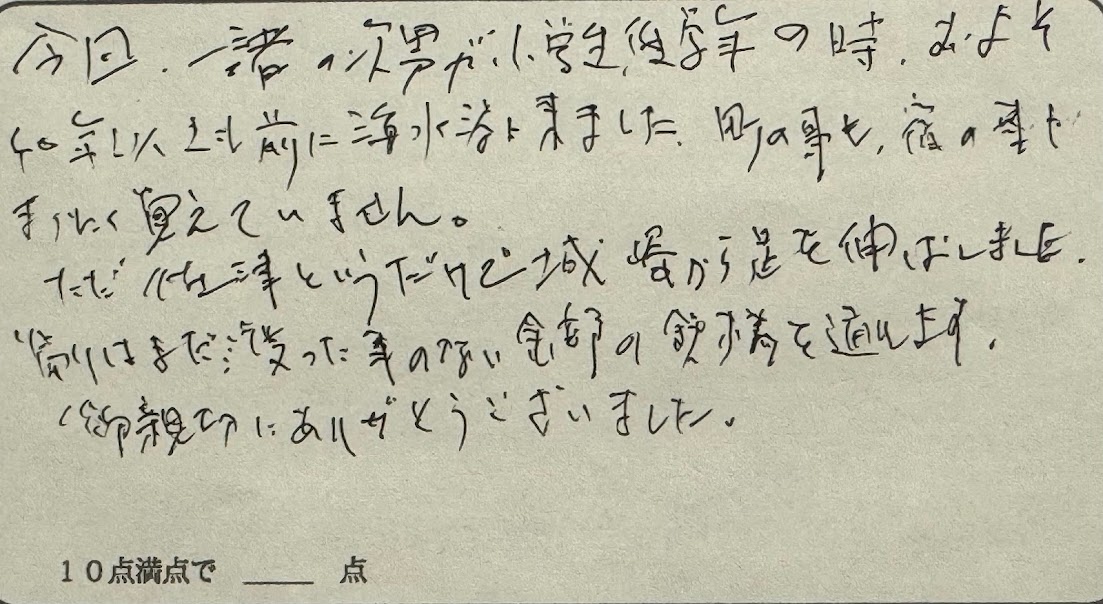 今回、一諸の次男が小学生低学年の時、およそ
40年以上も前に海水浴に来ました。町の事も、宿の事も
まったく覚えていません。
ただ佐津というだけで城崎から足を伸ばしました。
帰りはまだ渡った事のない余部の鉄橋を通ります。
御親切にありがとうございました。
10点満点で ____ 点